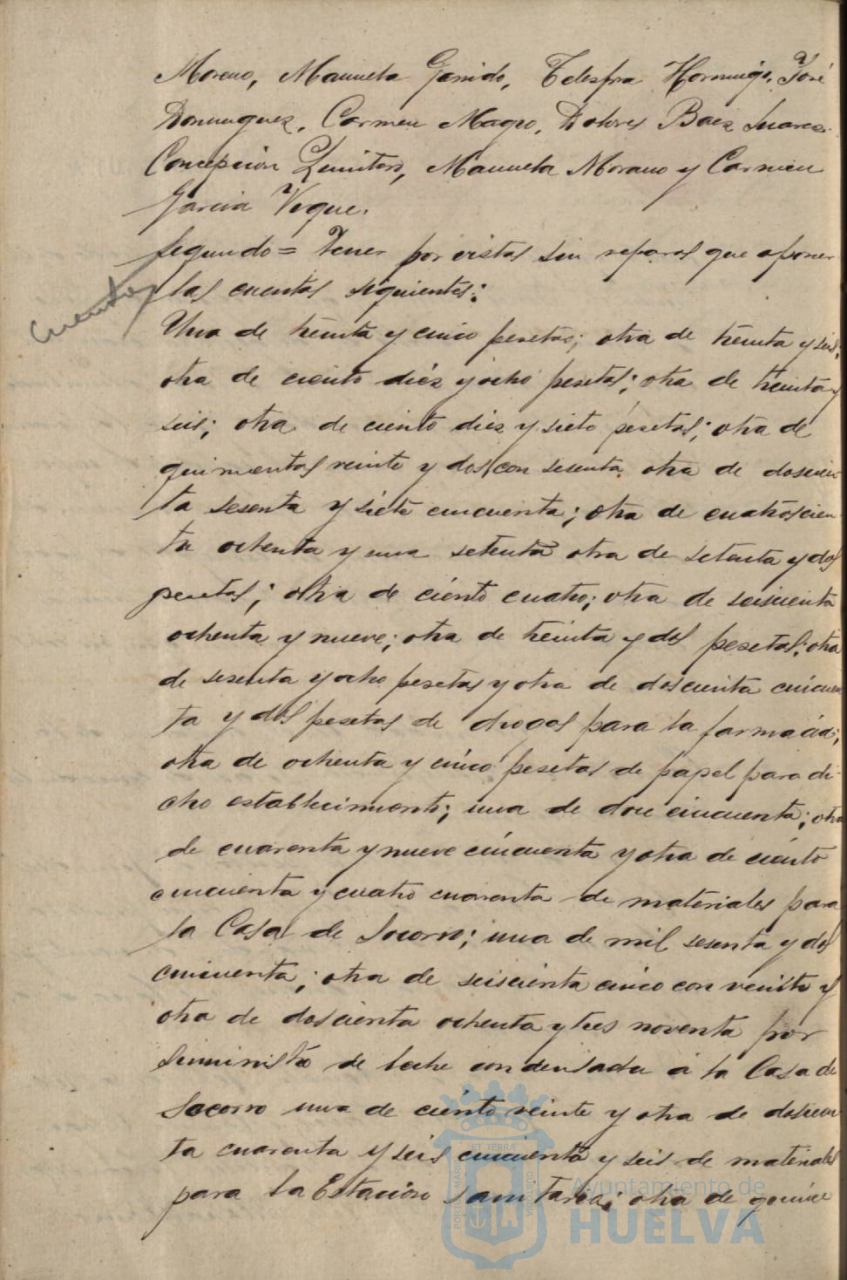 Moreno, Manuela Garrido, Telesfra Hormigo, José
Dominguez, Carmen Magro, Dolores Baez Suarez.
Concepción Quintero, Manuela Morano y Carmen
Garcia Vegue.
Segundo = Tener por vistas sin reparos que oponer
Cuentas
las cuentas siguientes:
Una de treinta y cinco pesetas; otra de treinta y seis;
otra de ciento diez y ocho pesetas; otra de treinta y
seis; otra de ciento diez y siete pesetas; otra de
quinientas veinte y dos con sesenta otra de doscien
ta sesenta y siete cincuenta; otra de cuatroscien
ta ochenta y una setenta otra de setenta y dos
pesetas; otra de ciento cuatro; otra de seiscienta
ochenta y nueve; otra de treinta y dos pesetas; otra
de sesenta y ocho pesetas y otra de doscienta cincuen
ta y dos pesetas de drogas para la farmacia;
otra de ochenta y cinco pesetas de papel para di-
cho establecimiento; una de doce cincuenta; otra
de cuarenta y nueve cincuenta y otra de ciento
cincuenta y cuatro cuarenta de materiales para
la Casa de Socorro; una de mil sesenta y dos
cincuenta; otra de seiscienta cinco con veinte y
otra de doscienta ochenta y tres noventa por
suministro de leche condensada a la Casa de
Socorro una de ciento veinte y otra de doscien
ta cuarenta y seis cincuenta y seis de materiales
para la Estación Sanitaria; otra de quince
Ayuntamiento de
HUELVA